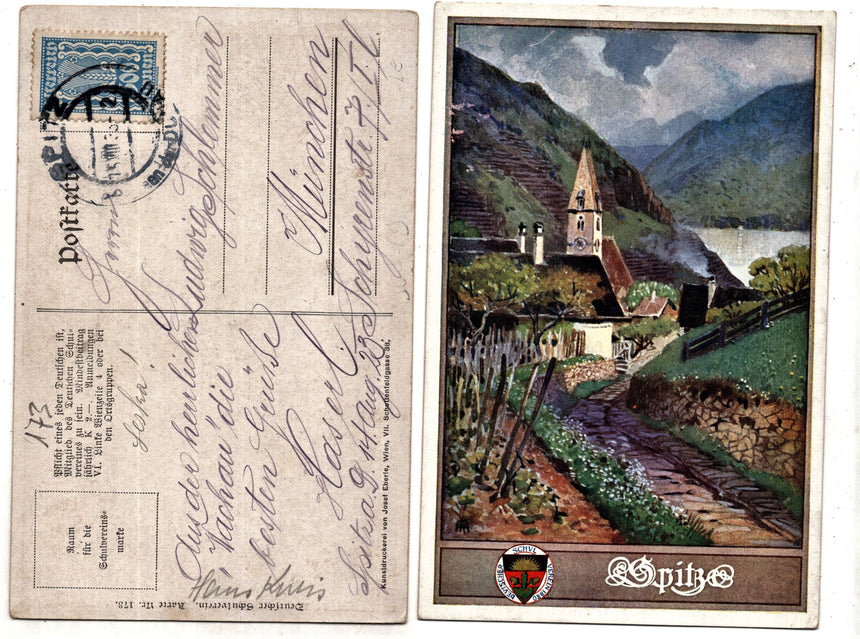 200
SPITZ
an der D
Postkarte
Ludwig Schlemmer
München
Schyrenstr. 7/I. l.
Pflicht eines jeden Deutschen ist,
Mitglied des Deutschen Schul-
vereines zu sein. Mindestbeitrag
jährlich K 2.—. Anmeldungen
VI. Linke Wienzeile 4 oder bei
den Ortsgruppen.
173
Raum
für die
Schulvereins-
marke
Aus der herrlichen
Wachau die
besten Grüße
Spitz a. D. 14. Aug. 23
Deutscher Schulverein. Karte Nr. 173.
Kunstdruckerei von Josef Eberle, Wien, VII. Schottenfeldgasse 38.
DEUTSCHER SCHUL VEREIN
Spitz